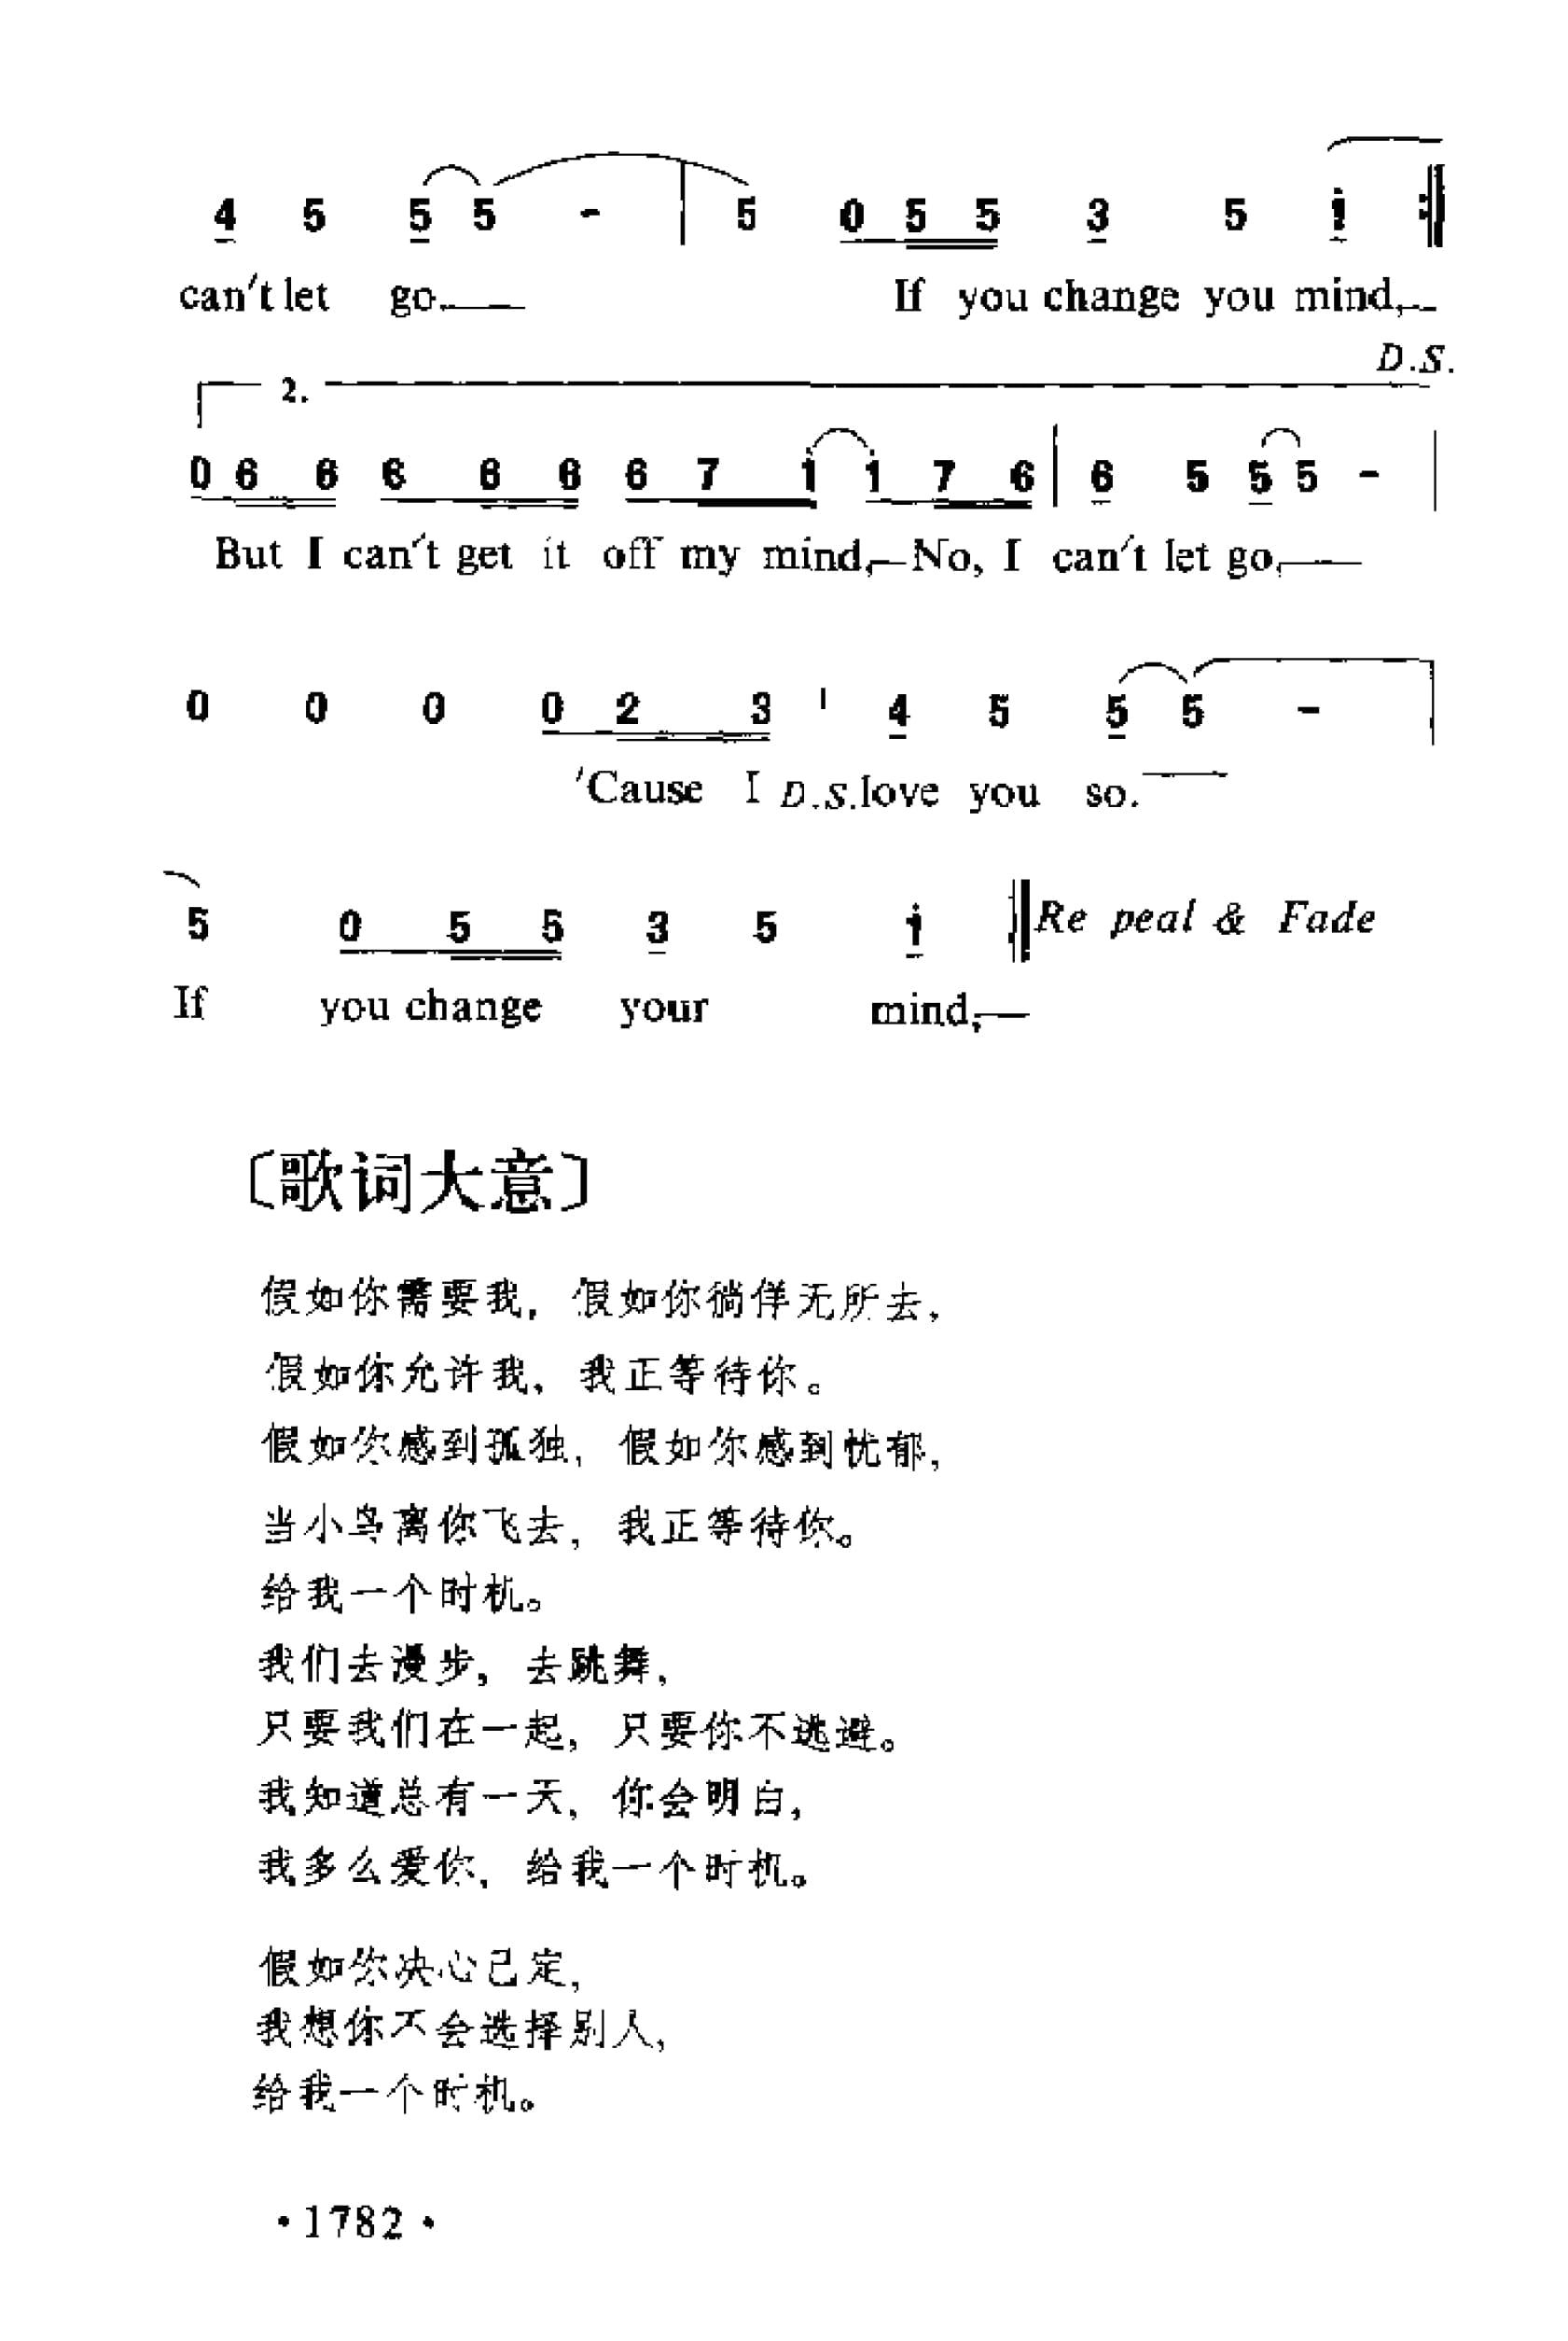 4 5 5 5 - | 5 0 5 5 3 5 i :||
can't let go.— If you change you mind,—
D.S.
2.
0 6 6 6 6 6 6 7 i i 7 6 | 6 5 5 5 - |
But I can't get it off my mind,— No, I can't let go,—
0 0 0 0 2 3 | 4 5 5 5 - |
'Cause I D.S. love you so.—
5 0 5 5 3 5 i :|| Re peal & Fade
If you change your mind,—
〔歌词大意〕
假如你需要我，假如你徜佯无所去，
假如你允许我，我正等待你。
假如你感到孤独，假如你感到忧郁，
当小鸟离你飞去，我正等待你。
给我一个时机。
我们去漫步，去跳舞，
只要我们在一起，只要你不逃避。
我知道总有一天，你会明白，
我多么爱你，给我一个时机。
假如你决心已定，
我想你不会选择别人，
给我一个时机。
·1782·